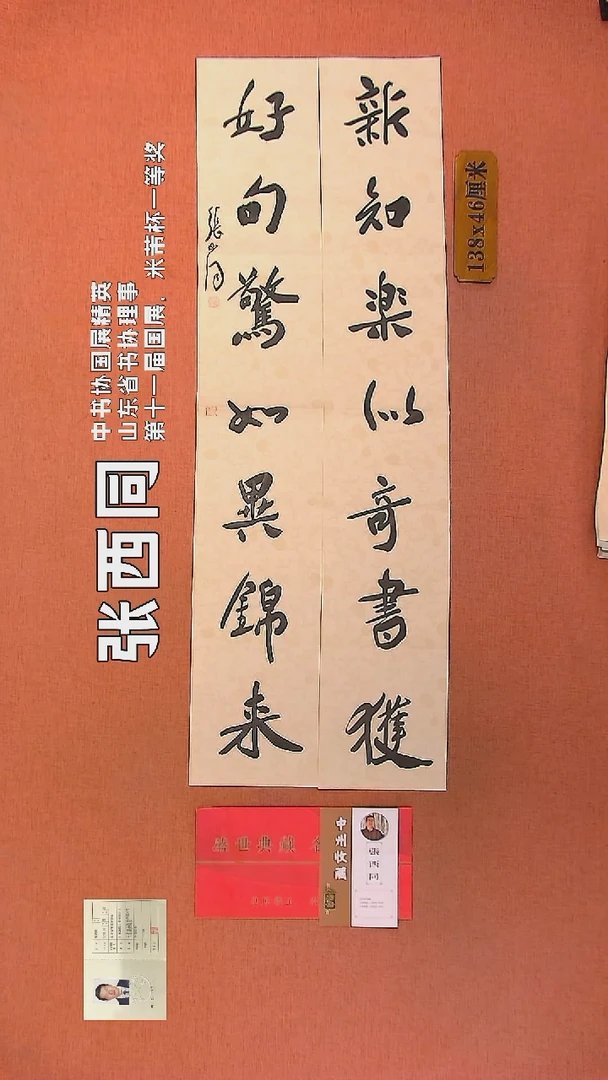 新知楽似奇書獲
好句驚如異錦来
張西同
138x46厘米
中书协国展精英
山东省书协理事
第十一届国展、米芾杯一等奖
张西同
盛世典藏
張西同